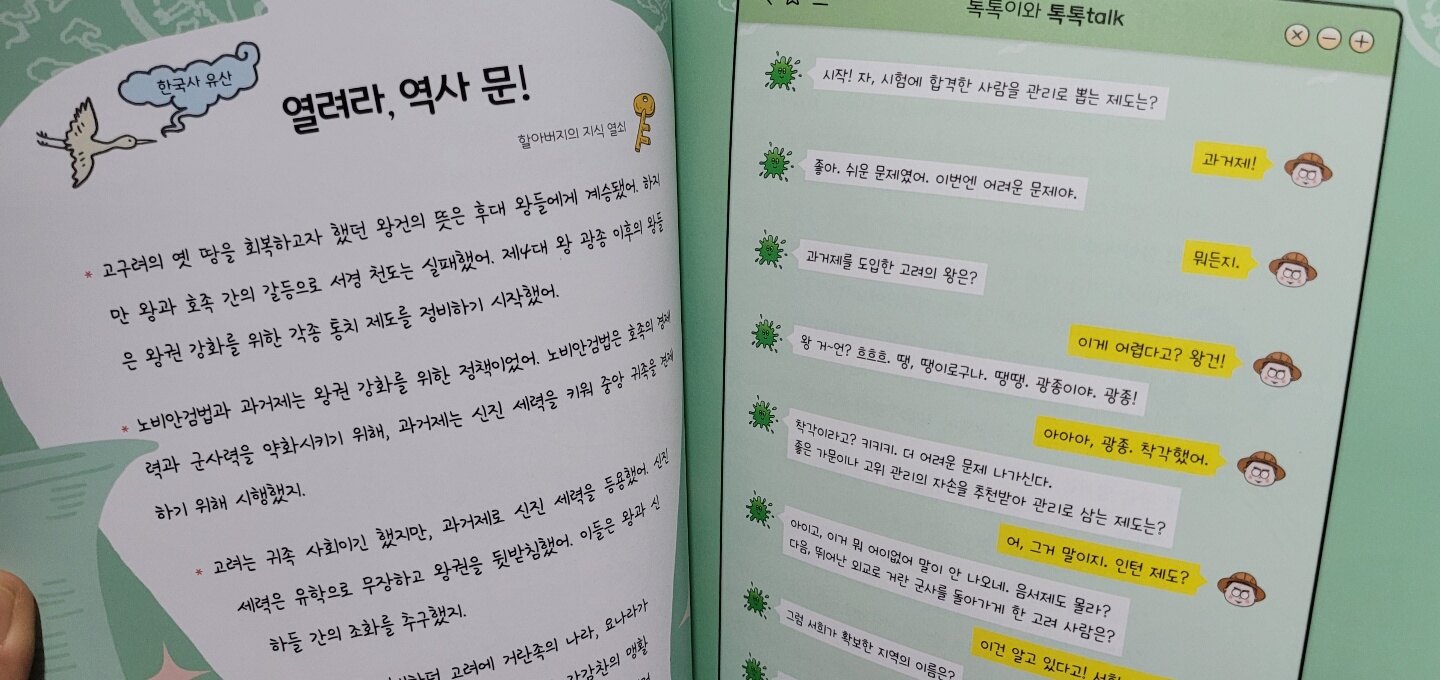 한국사 유산
열려라, 역사 문!
할아버지의 지식 열쇠
* 고구려의 옛 땅을 회복하고자 했던 왕건의 뜻은 후대 왕들에게 계승됐어. 하지
만 왕과 호족 간의 갈등으로 서경 천도는 실패했어. 제4대 왕 광종 이후의 왕들
은 왕권 강화를 위한 각종 통치 제도를 정비하기 시작했어.
* 노비안검법과 과거제는 왕권 강화를 위한 정책이었어. 노비안검법은 호족의 경제
력과 군사력을 약화시키기 위해, 과거제는 신진 세력을 키워 중앙 귀족을 견제
하기 위해 시행했지.
* 고려는 귀족 사회이긴 했지만, 과거제로 신진 세력을 등용했어. 신진
세력은 유학으로 무장하고 왕권을 뒷받침했어. 이들은 왕과 신
하들 간의 조화를 추구했지.
고려에 거란족의 나라, 요나라가
강감찬의 맹활
톡톡이와 톡톡talk
시작! 자, 시험에 합격한 사람을 관리로 뽑는 제도는?
과거제!
좋아. 쉬운 문제였어. 이번엔 어려운 문제야.
뭐든지.
과거제를 도입한 고려의 왕은?
이게 어렵다고? 왕건!
왕 거~언? 흐흐흐. 땡, 땡이로구나. 땡땡. 광종이야. 광종!
아아아, 광종. 착각했어.
착각이라고? 키키키. 더 어려운 문제 나가신다.
좋은 가문이나 고위 관리의 자손을 추천받아 관리로 삼는 제도는?
어, 그거 말이지. 인턴 제도?
아이고, 이거 뭐 어이없어 말이 안 나오네. 음서제도 몰라?
다음, 뛰어난 외교로 거란 군사를 돌아가게 한 고려 사람은?
이건 알고 있다고!
그럼 서희가 확보한 지역의 이름은?